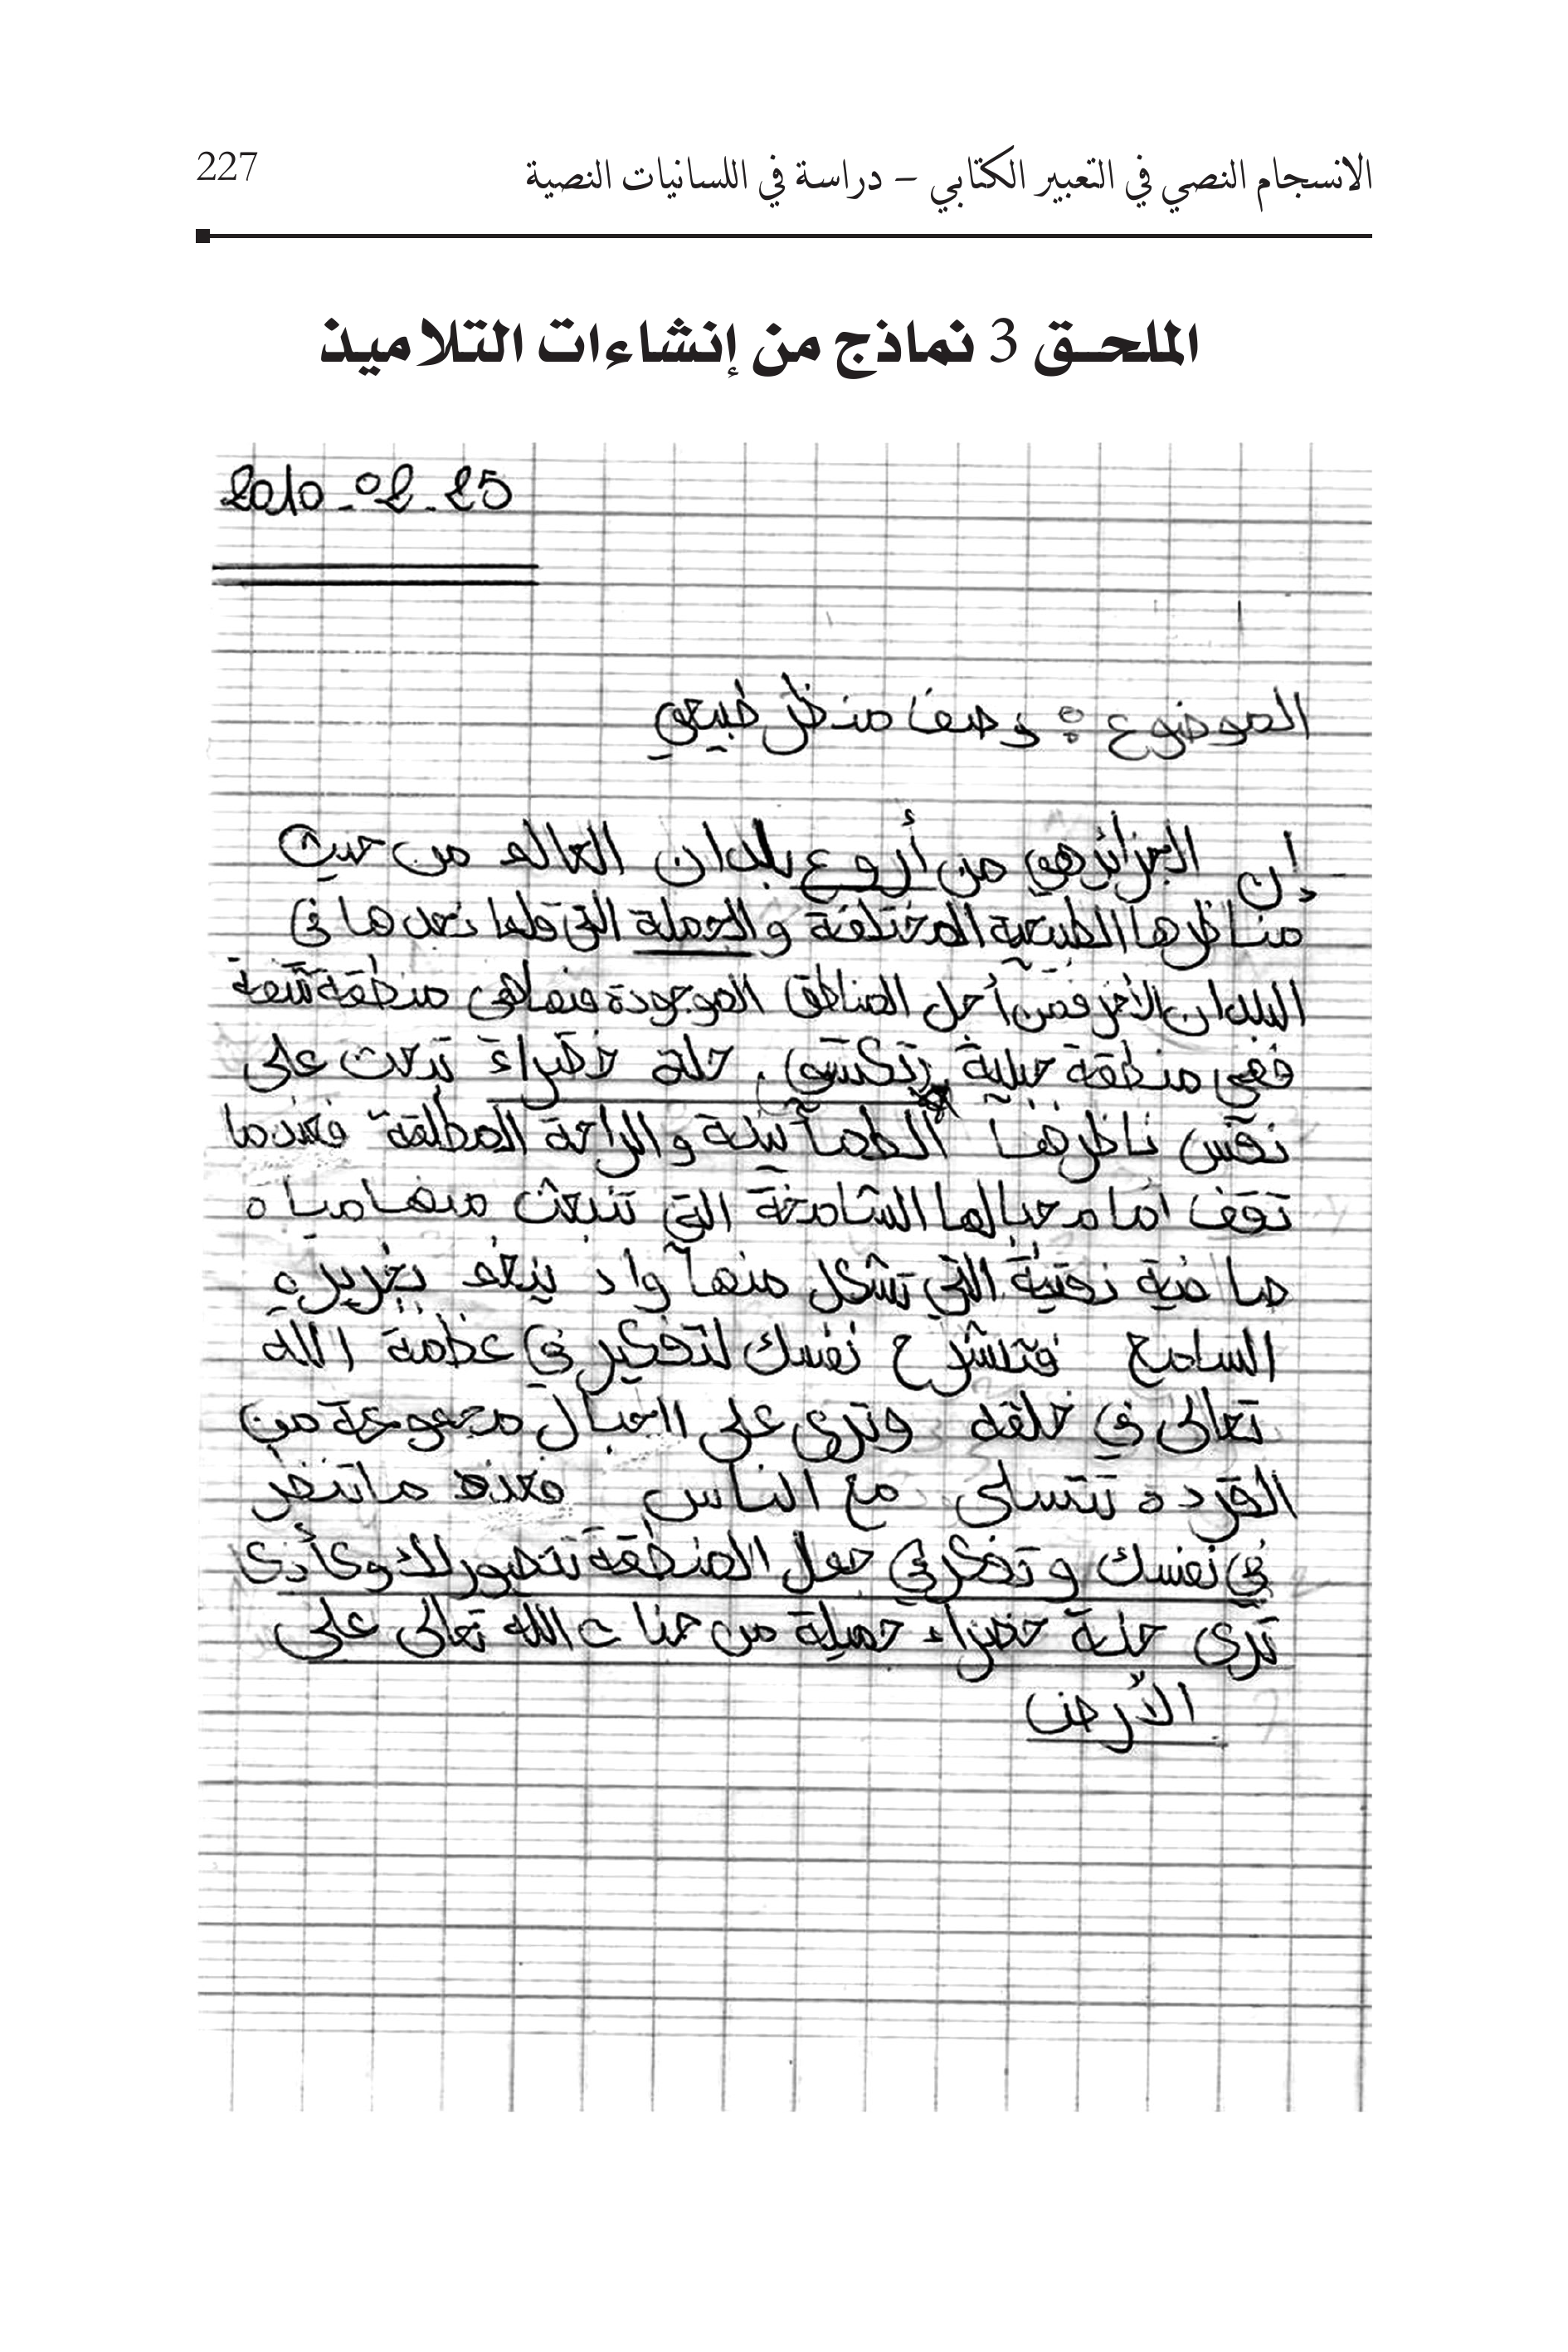 الانسجام النصي في التعبير الكتابي – دراسة في اللسانيات النصية
227
الملحـق 3 نماذج من إنشاءات التلاميذ
2010-02-25
الموضوع : وصف منظر طبيعي
إن الجزائر هي من أروع بلدان العالم من حيث
مناظرها الطبيعية المختلفة و الجملة التي قلما نجدها في
البلدان الأخر فمن أجمل المناطق الموجودة فيها هي منطقة
فهي منطقة جبلية تكتسي حلة خضراء تبعث على
نفس ناظرها الطمأنينة والراحة المطلقة فعندما
تقف أمام جبالها الشامخة التي تنبعث منها مياه
صافية نقية التي تشكل منها واد ينغم بخريره
السامع فتنشرح نفسك لتفكير في عظمة الله
تعالى في خلقه وترى على الجبال مجموعة من
القردة تتسلى مع الناس فعند ما تنظر
في نفسك و تفكر في جمل المنطقة تتصور لك وكأنك
ترى جنة خضراء جميلة من جنات الله تعالى على
الأرض